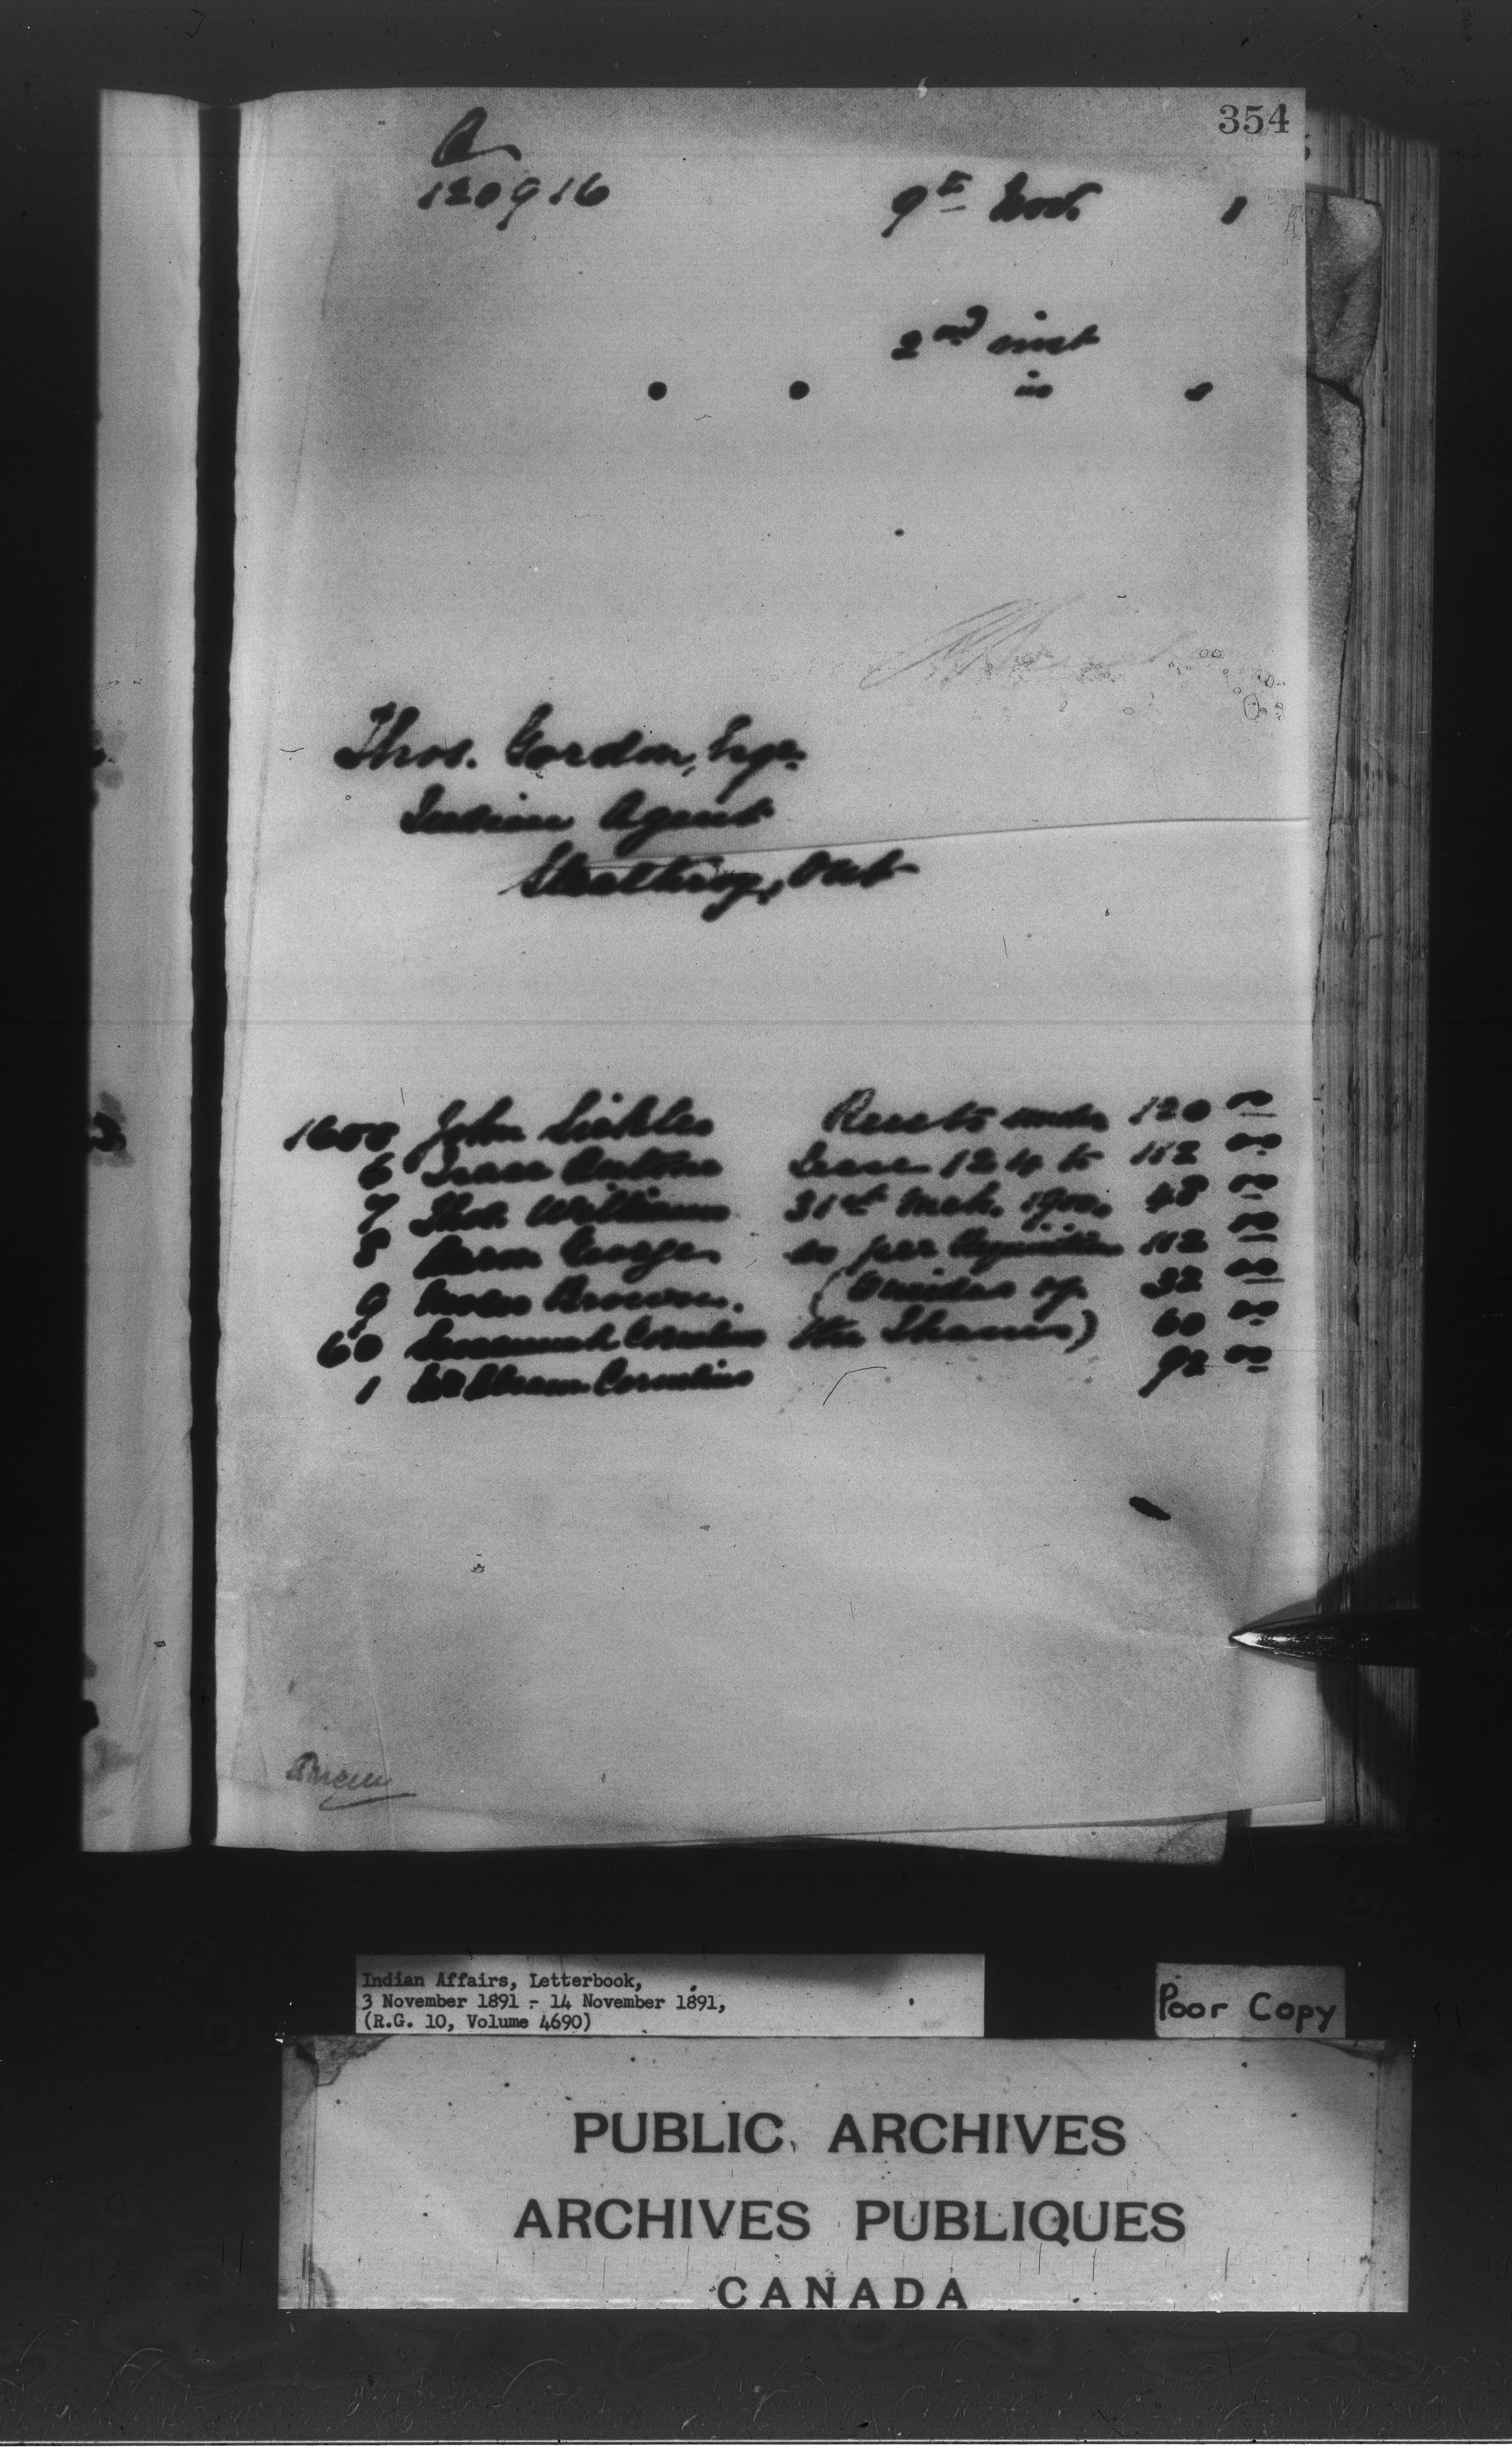 354
A
120916
9th Novr. 1
2nd inst
is
Thos. Gordon, Esqr.
Indian Agent
Strathroy, Ont
1600 John Sickles Rents under 120 00
6 Isaac Antone Lease 124 to 112 00
7 Thos. Williams 31st Mch. 1900. 48 00
8 Aaron George as per Requisition 112 00
9 Moses Brown. (Oneidas of 32 00
60 Susannah Cornelius the Thames) 60 00
1 Cornelius 92 00
Indian Affairs, Letterbook,
3 November 1891 - 14 November 1891,
(R.G. 10, Volume 4690)
Poor Copy
PUBLIC ARCHIVES
ARCHIVES PUBLIQUES
CANADA